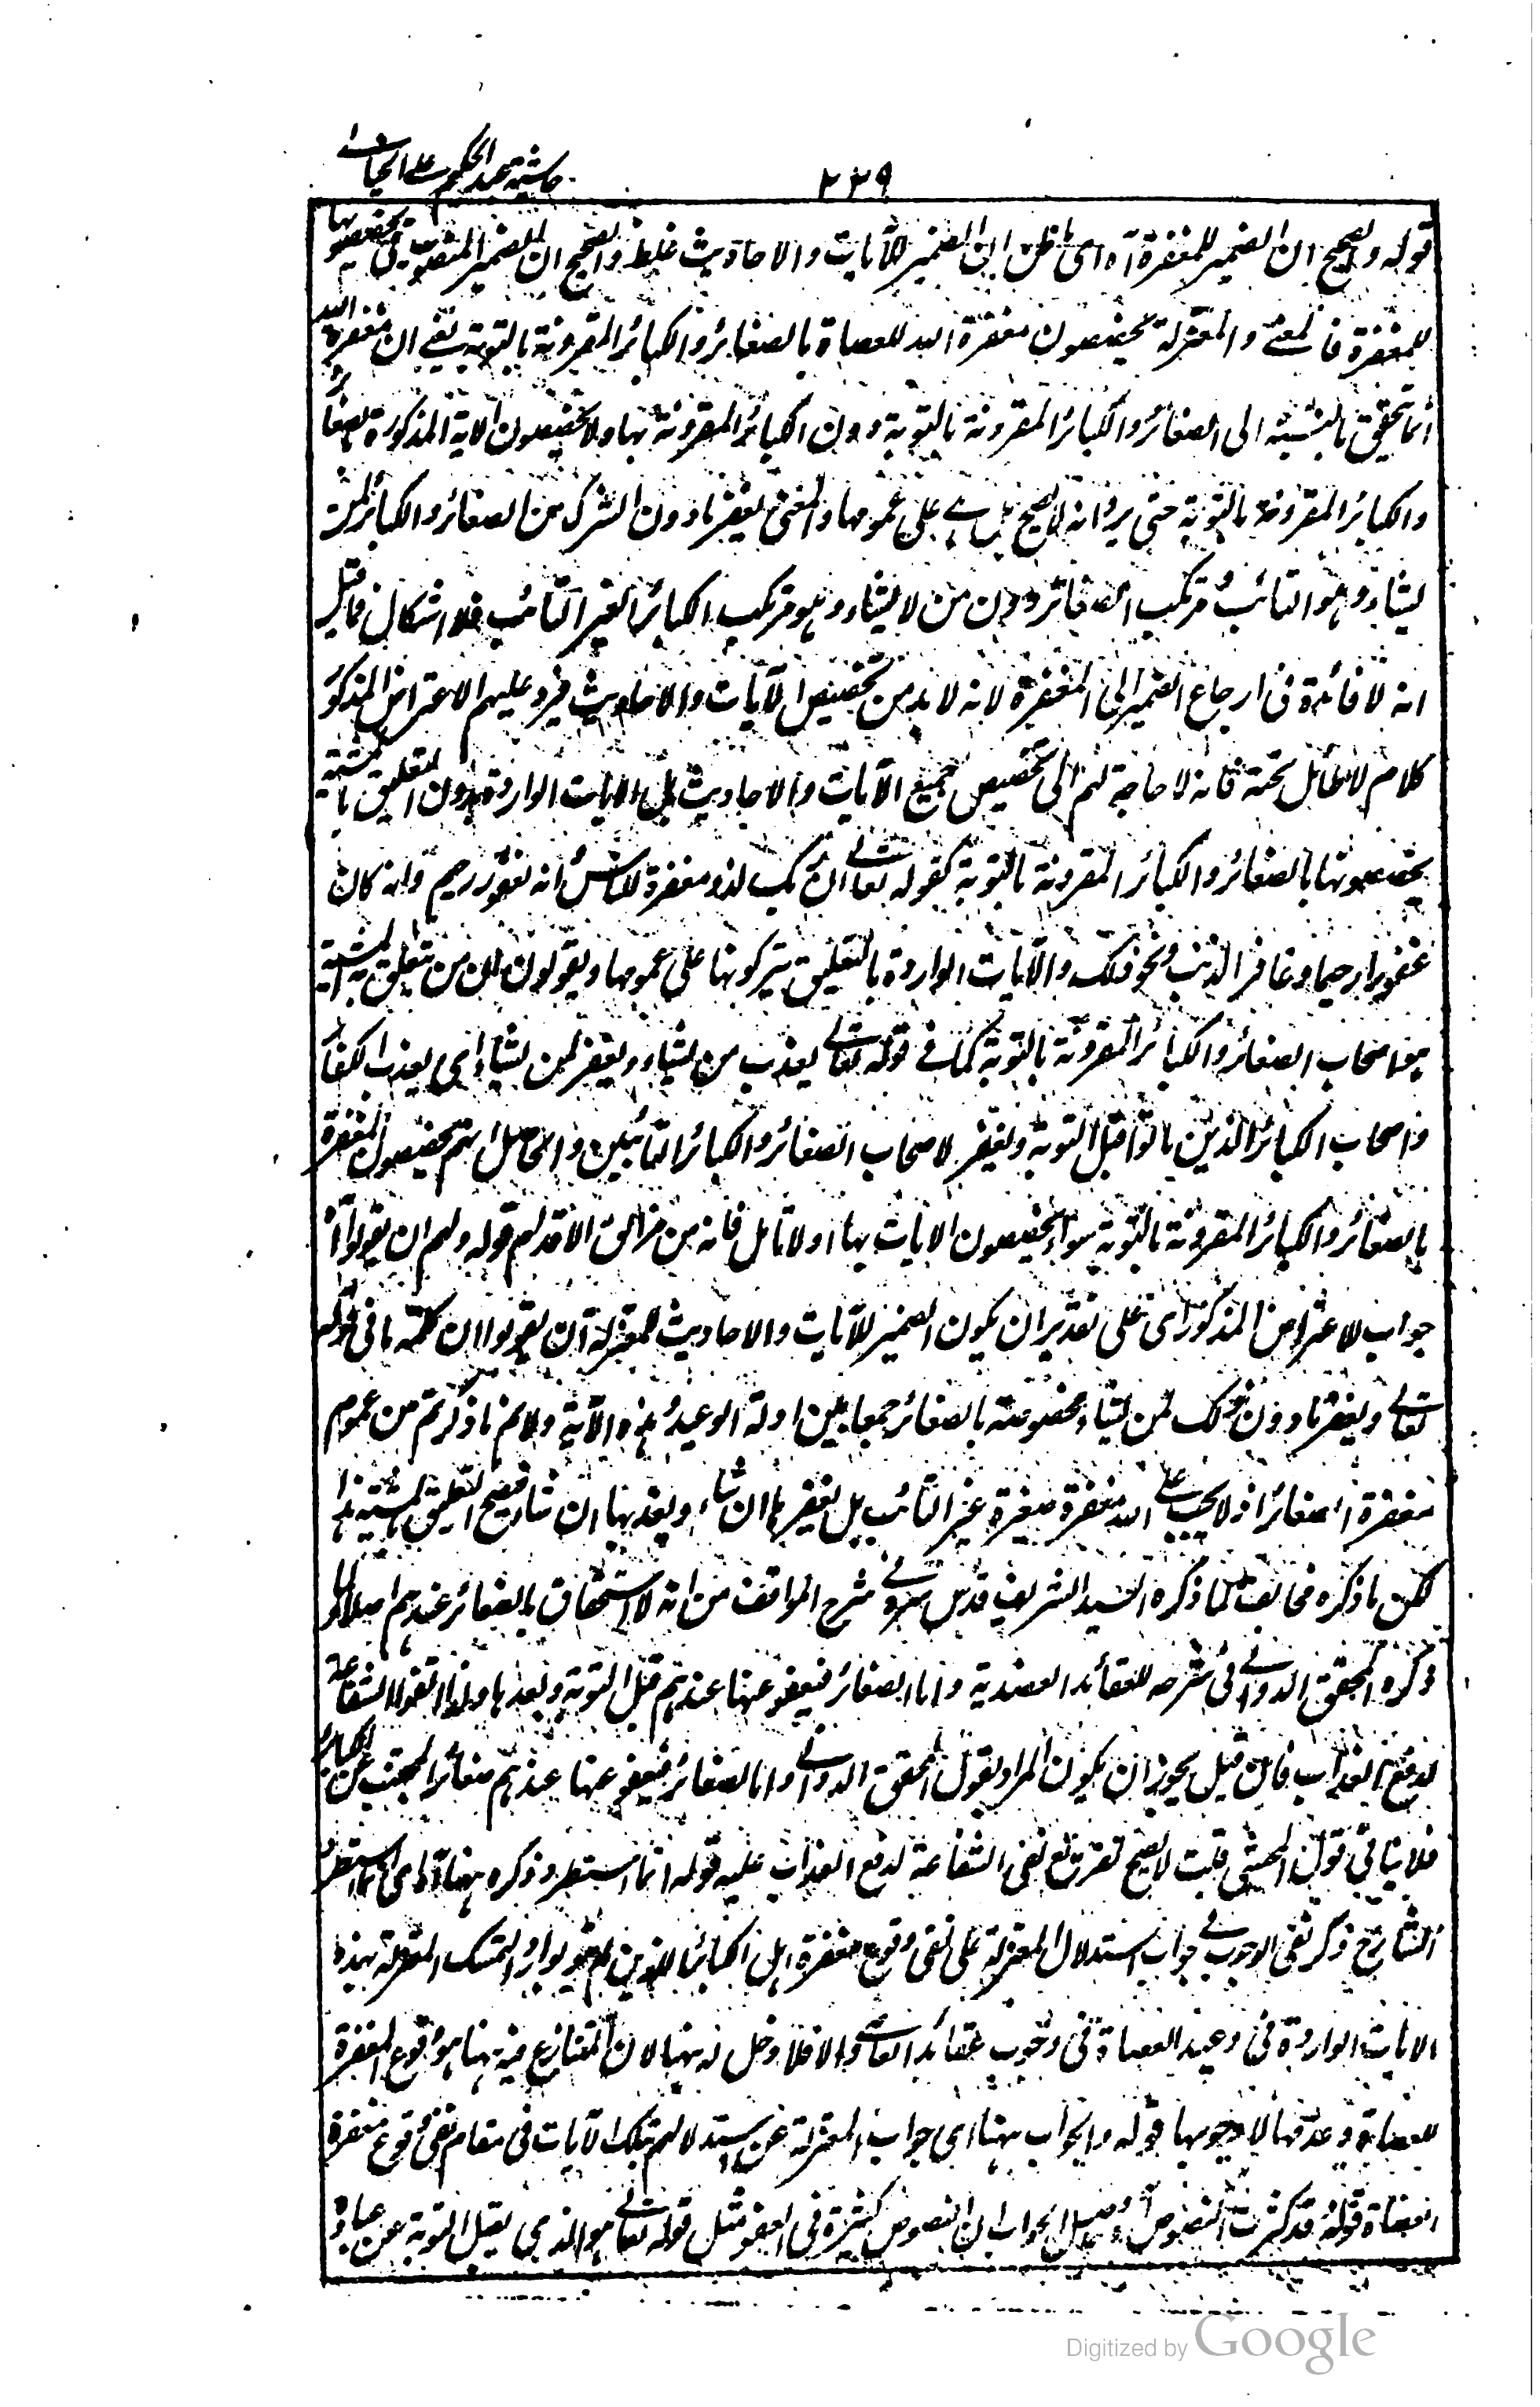 حاشية عبد الحكيم على الخيالي
٢٣٩
قوله والصحيح ان الضمير للمغفرة آه اى ما ظن ان الضمير للآيات والاحاديث غلط والصحيح ان الضمير المنصوب فى يخصصونها
للمغفرة فالمعنى والمعتزلة يخصصون مغفرة الله للعصاة بالصغائر والكبائر المقرونة بالتوبة يعنى ان مغفرة الله
انما تحقق بالنسبة الى الصغائر والكبائر المقرونة بالتوبة دون الكبائر المقرونة بها ولا يخصصون الآية المذكورة بالصغائر
والكبائر المقرونة بالتوبة حتى يرد انه لا يصح بل هى على عمومها والمعنى يغفر ما دون الشرك من الصغائر والكبائر لمن
يشاء وهو التائب ومرتكب الصغائر دون من لا يشاء وهو مرتكب الكبائر الغير التائب فلا اشكال فما قيل
انه لا فائدة فى ارجاع الضمير الى المغفرة لانه لا بد من تخصيص الآيات والاحاديث فيرد عليهم الاعتراض المذكور
كلام لا طائل تحته فانه لا حاجة لهم الى تخصيص جميع الآيات والاحاديث بل الآيات الواردة بدون التعليق بالمشية
يخصصونها بالصغائر والكبائر المقرونة بالتوبة كقوله تعالى ان ربك لذو مغفرة للناس انه غفور رحيم وانه كان
غفورا رحيما وغافر الذنب ونحو ذلك والآيات الواردة بالتعليق يتركونها على عمومها ويقولون ان من تعلق به المشية
هو اصحاب الصغائر والكبائر المقرونة بالتوبة كما فى قوله تعالى يعذب من يشاء ويغفر لمن يشاء اى يعذب الكفار
واصحاب الكبائر الذين ماتوا قبل التوبة ويغفر لاصحاب الصغائر والكبائر التائبين والحاصل انهم يخصصون المغفرة
بالصغائر والكبائر المقرونة بالتوبة سواء يخصصون الآيات بها او لا تامل فانه من مزالق الاقدام قوله ولهم ان يقولوا آه
جواب للاعتراض المذكور اى على تقدير ان يكون الضمير للآيات والاحاديث للمعتزلة ان يقولوا ان كلمة ما فى قوله
تعالى ويغفر ما دون ذلك لمن يشاء مخصوصة بالصغائر جمعا بين ادلة الوعيد وهذه الآية ولا نم ما ذكرتم من عموم
مغفرة الصغائر اذ لا يجب على الله مغفرة صغيرة غير التائب بل يغفرها ان شاء ويعذبها ان شاء فيصح التعليق بالمشية هذا
لكن ما ذكره مخالف لما ذكره السيد الشريف قدس سره فى شرح المواقف من انه لا استحقاق بالصغائر عندهم اصلا ولما
ذكره المحقق الدوانى فى شرحه للعقائد العضدية واما الصغائر فيعفو عنها عندهم قبل التوبة وبعدها ولذا نفوا الشفاعة
لدفع العذاب فان قيل يجوز ان يكون المراد بقول المحقق الدوانى واما الصغائر فيعفو عنها عندهم صغائر المجتنب عن الكبائر
فلا ينافى قول المحشى قلت لا يصح تفريع نفى الشفاعة لدفع العذاب عليه قوله انما استطرد ذكره ههنا آه اى انما استطرد
الشارح ذكر نفى الوجوب فى جواب استدلال المعتزلة على نفى وقوع مغفرة اهل الكبائر الذين لم يتوبوا والتمسك المعتزلة بهذه
الآيات الواردة فى وعيد العصاة فى وجوب عقاب العاصى والا فلا دخل له ههنا لان المتنازع فيه ههنا هو وقوع المغفرة
للعصاة وعدمها لا وجوبها قوله والجواب ههنا اى جواب المعتزلة عن استدلالهم بتلك الآيات فى مقام نفى وقوع مغفرة
العصاة قوله قد كثرت النصوص آه وحاصل الجواب ان النصوص كثيرة فى العفو مثل قوله تعالى هو الذى يقبل التوبة عن عباده
Digitized by Google